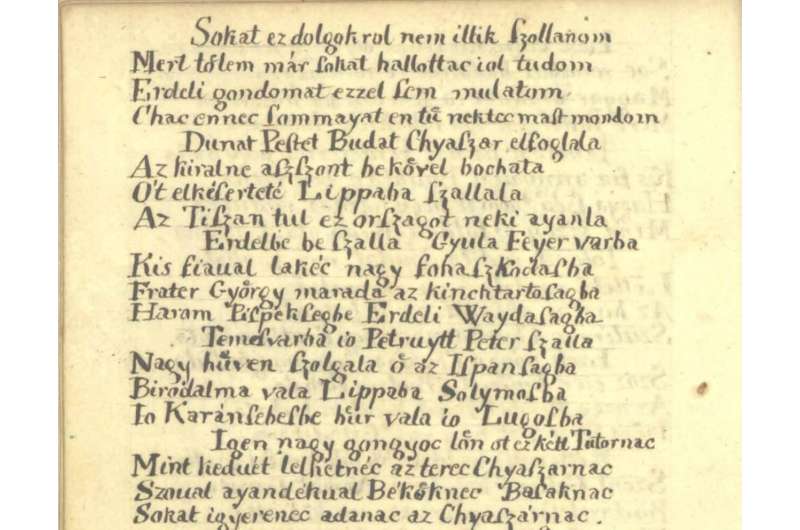 Sokat ez dolgokrol nem illik ſzollanom
Mert tőlem már ſokat hallottac iol tudom
Erdeli gondomat ezzel ſem mulatom
Chac ennec ſommayat en tů nektec maſt mondom
Dunat Peſtet Budat Chyaſzar elfoglala
Az kiralne aſzſzont bekővel bochata
Ot elkéſerteté Lippaba ſzallala
Az Tiſzan tul ez orſzagot neki ayanla
Erdelbe be ſzalla Gyula Feyer varba
Kis fiaual lakéc nagy fohaſzkodaſba
Frater György marada az kinchtartoſagba
Harom Piſpekſegbe Erdeli Waydaſagba
Temeſvarba io Petruytt Peter ſzalla
Nagy hůven ſzolgala ő az Iſpanſagba
Birodalma vala Lippaba Solymoſba
Io Karánſebeſbe hůr vala io Lugoſba
Igen nagy gongyoc lőn ot ez kétt Tutornac
Mint keduét lelhetnéc az terec Chyaſzarnac
Szoual ayandékual Békőknec Baſaknac
Sokat igyerenec adanac az Chyaſzárnac